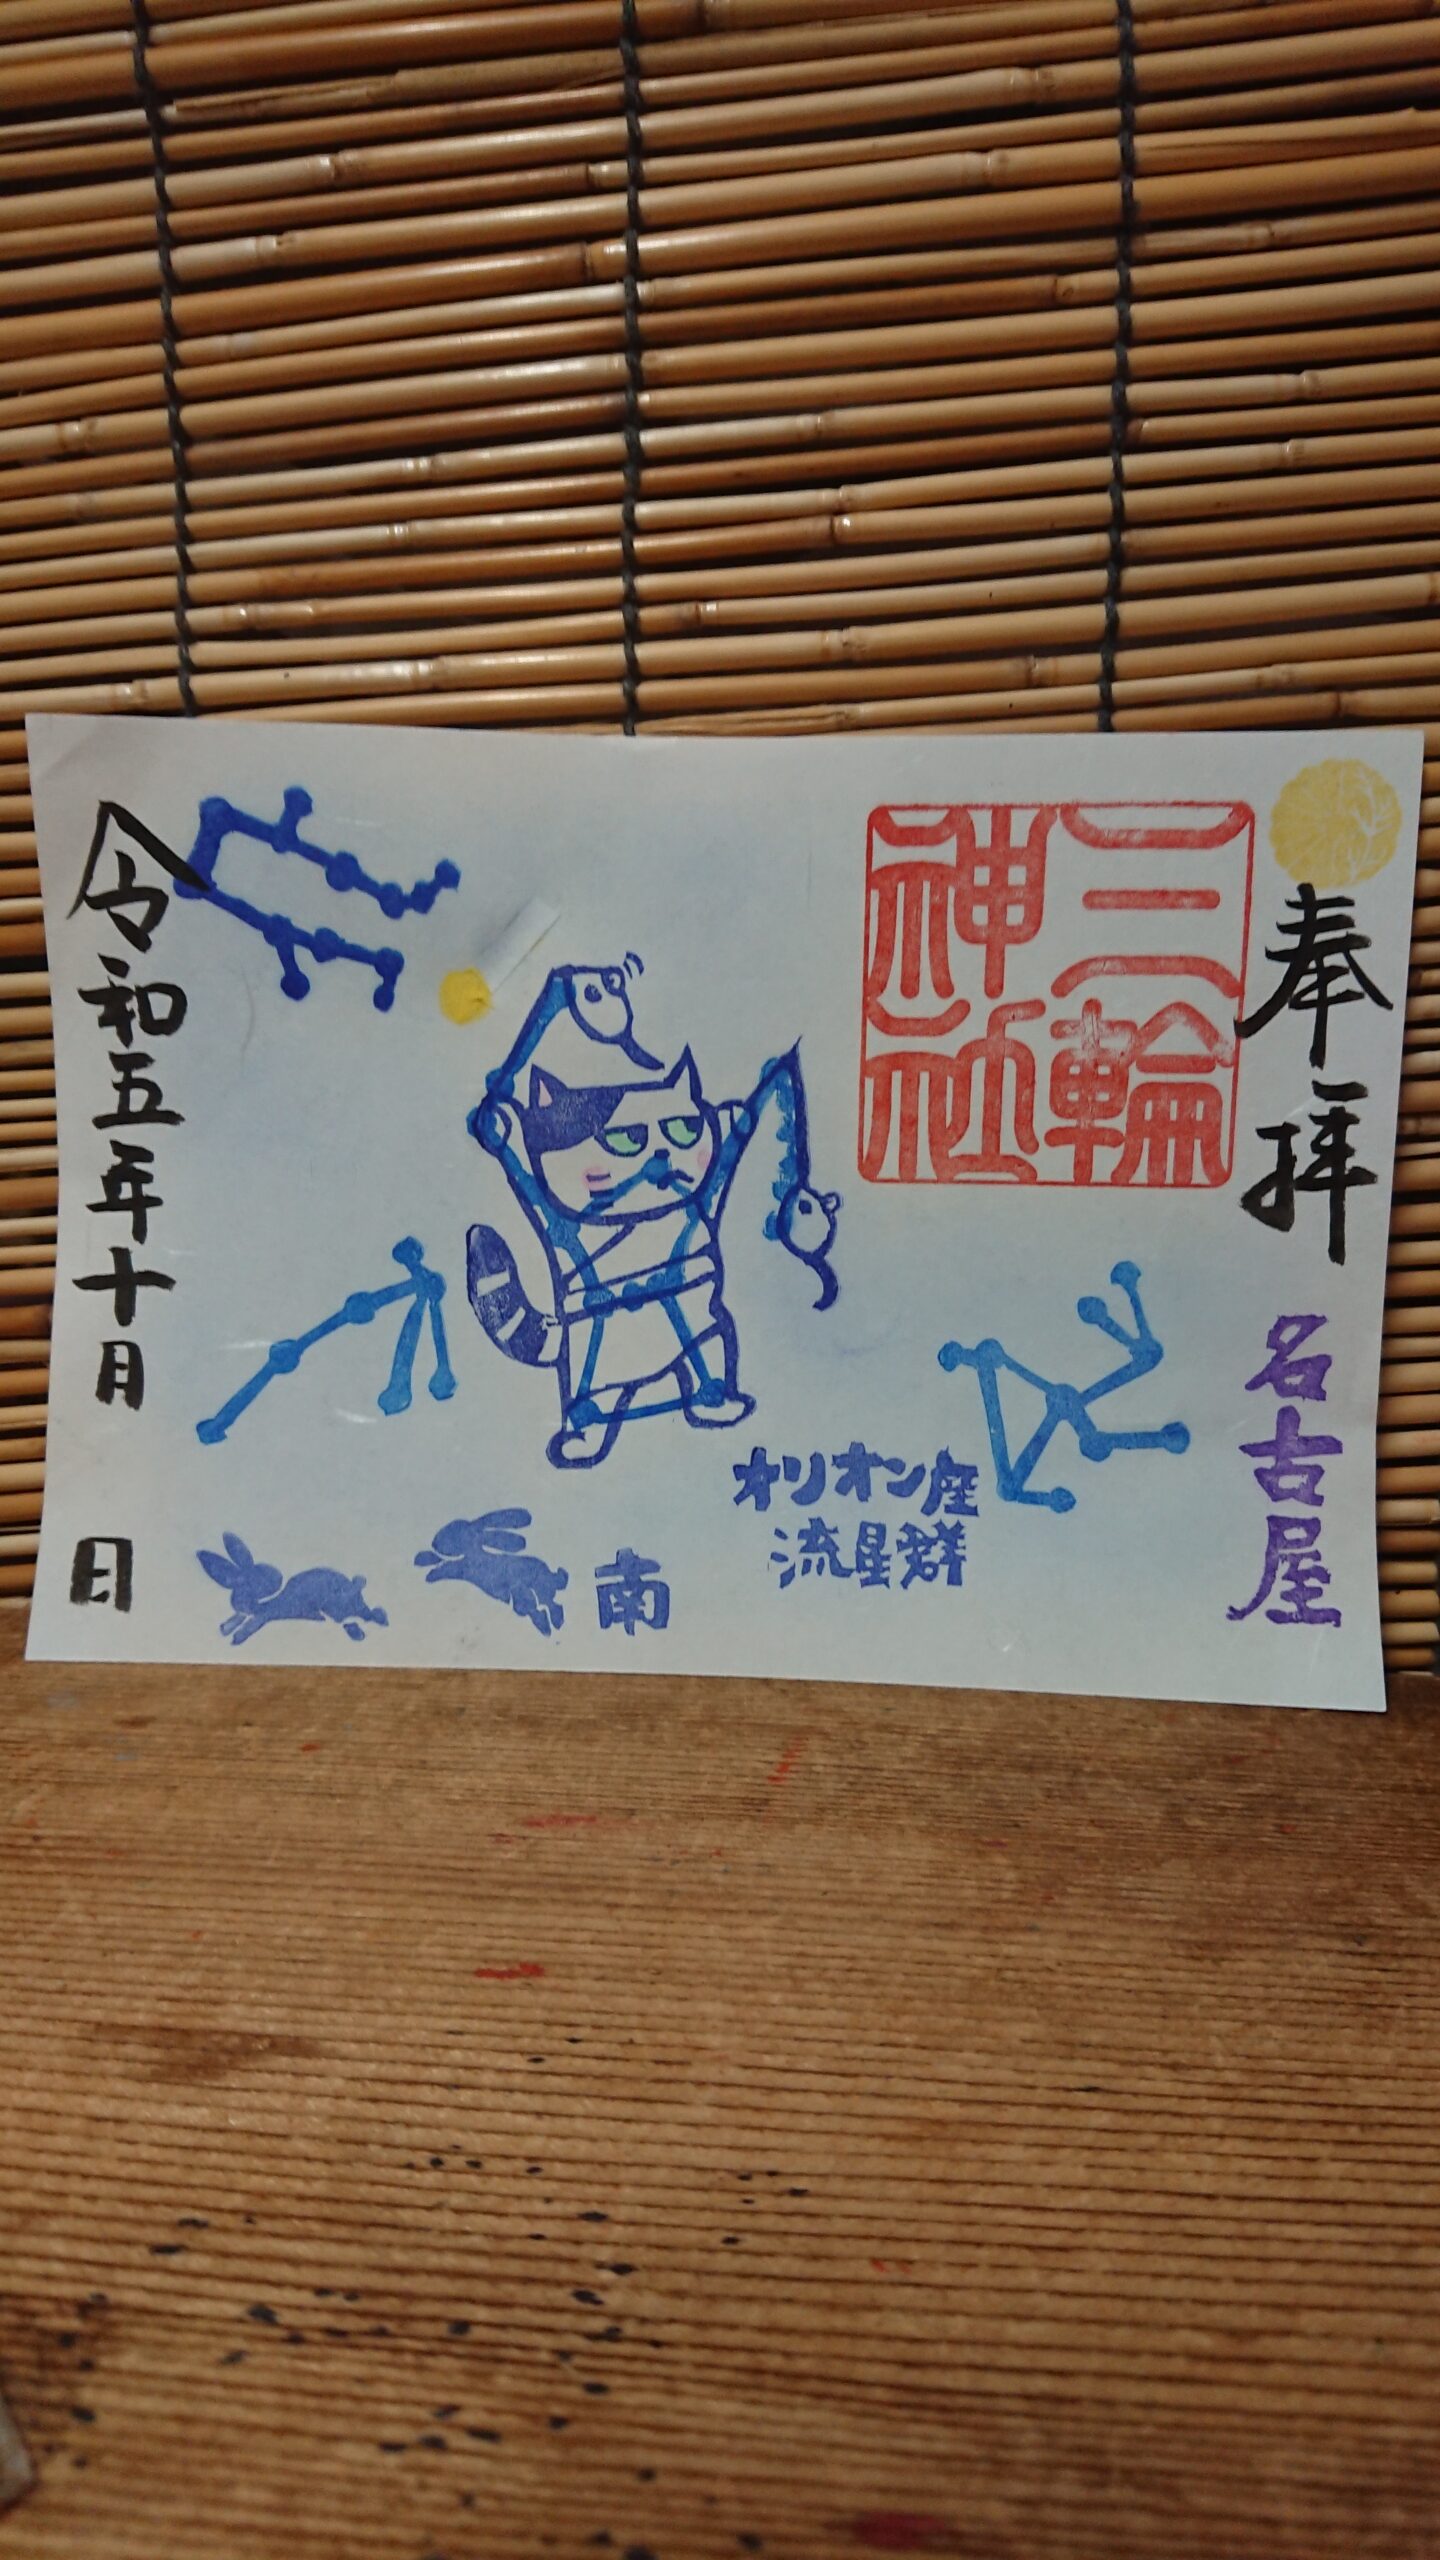 奉拝
名古屋
三輪
神社
オリオン座
流星群
南
令和五年十月 日